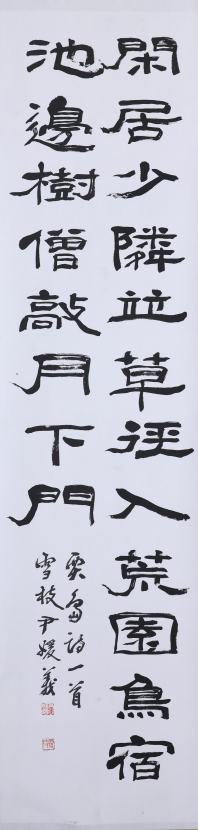 閑居少隣並草徑入荒園鳥宿
池邊樹僧敲月下門
賈島詩一首
雪枝尹媛義